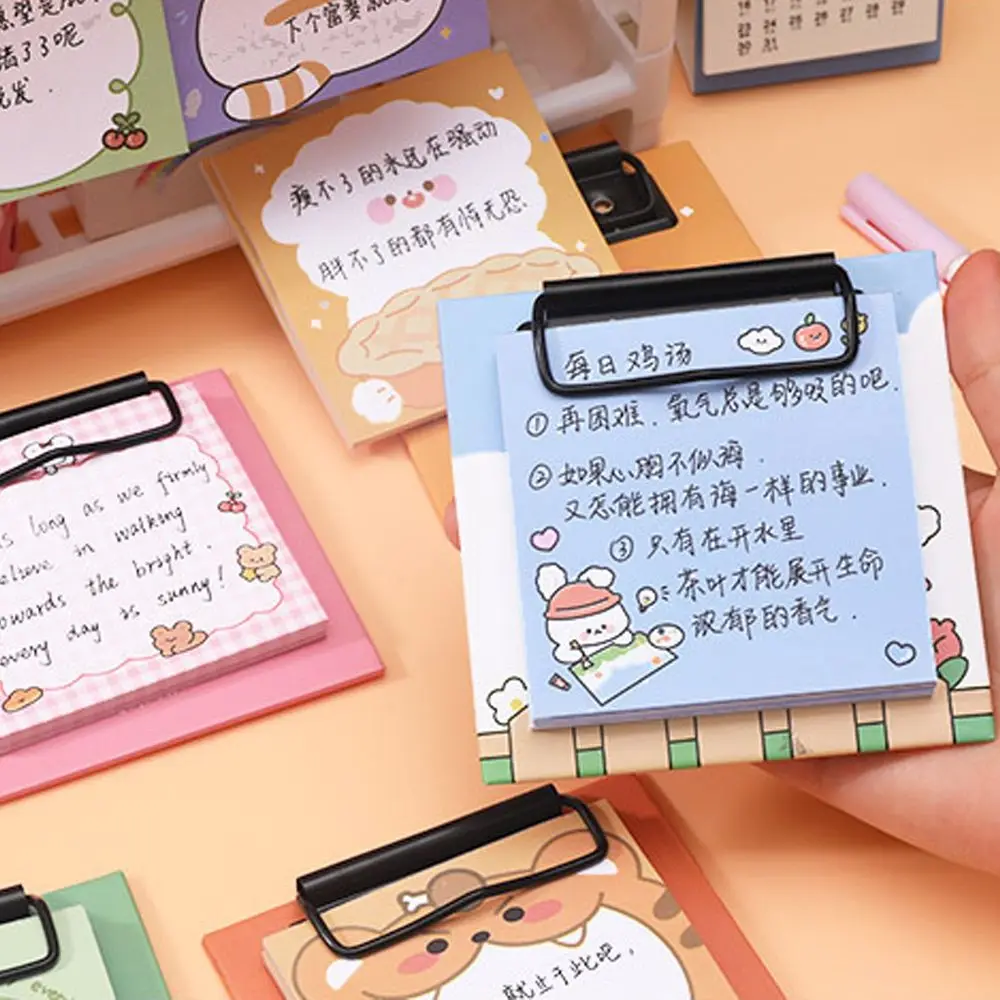 陆了33呢
说发.
下个富婆就
瘦不了的永远在骚动
胖不了的都有恃无恐.
每日鸡汤
①再困难.氧气总是够吸的吧.
②如果心胸不似海.
又怎能拥有海一样的事业.
③只有在开水里
茶叶才能展开生命
浓郁的香气.
s long as we firmly
elieve in walking
owards the bright.
every day is sunny!
就止于此吧.
every
22 23 24 25 26 27 28 29